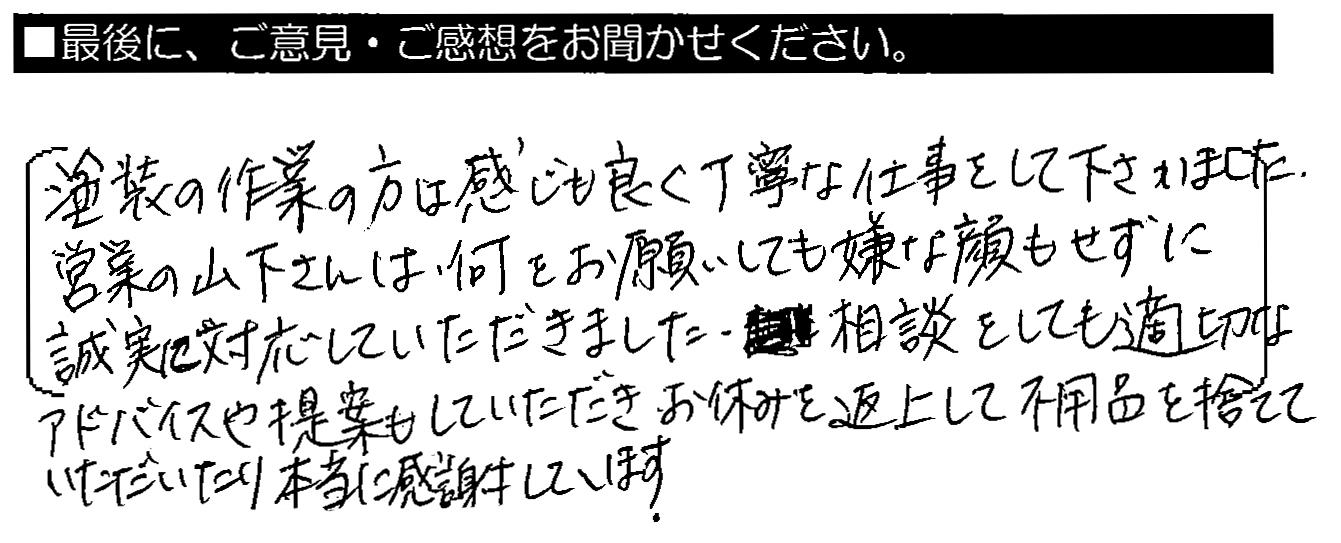 ■最後に、ご意見・ご感想をお聞かせください。
塗装の作業の方は感じも良く丁寧な仕事をして下さいました.
営業の山下さんは何をお願いしても嫌な顔もせずに
誠実に対応していただきました. 相談をしても適切な
アドバイスや提案もしていただきお休みを返上して不用品を捨てて
いただいたり本当に感謝しています.